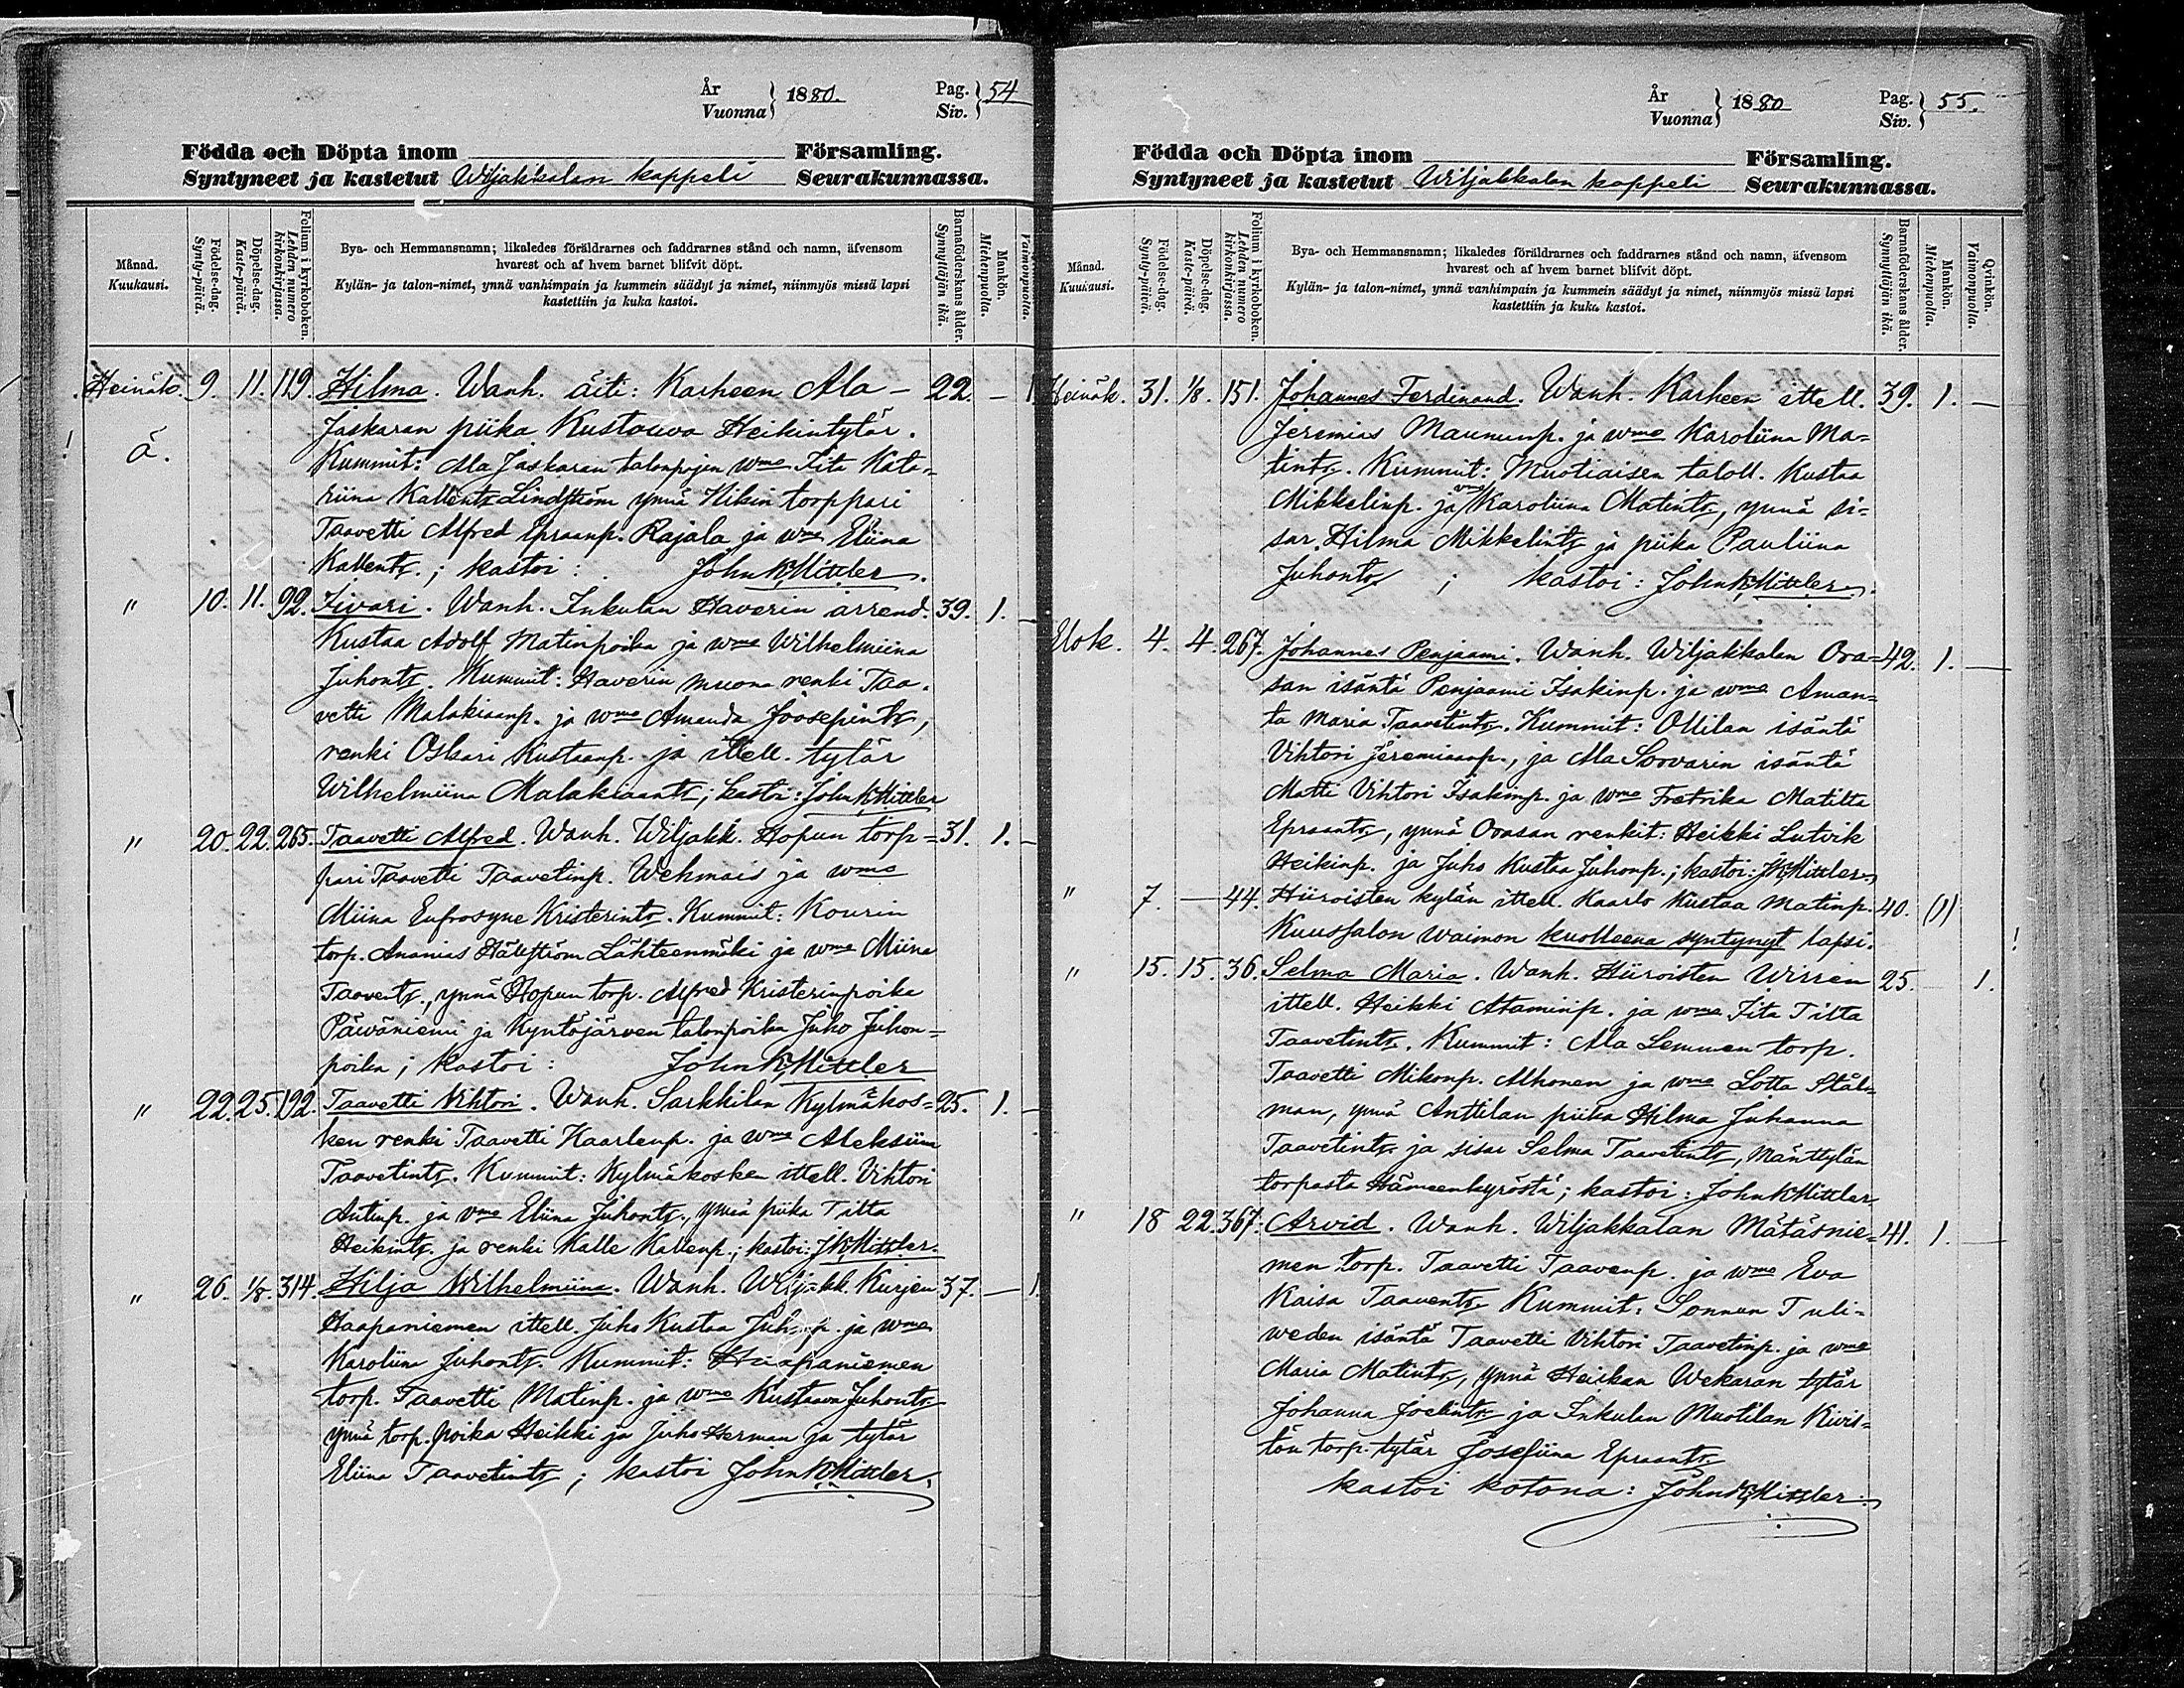 År Vuonna } 1880. Pag. Siv. } 54
Födda och Döpta inom Församling.
Syntyneet ja kastetut Wiljakkalan kappeli Seurakunnassa.
Månad. Kuukausi.
Födelse-dag. Synty-päivä.
Döpelse-dag. Kaste-päivä.
Folium i kyrkoboken. Lehden numero kirkonkirjassa.
Bya- och Hemmansnamn; likaledes föräldrarnes och faddrarnes stånd och namn, äfvensom
hvarest och af hvem barnet blifvit döpt.
Kylän- ja talon-nimet, ynnä vanhimpain ja kummein säädyt ja nimet, niinmyös missä lapsi
kastettiin ja kuka kastoi.
Barnaföderskans ålder. Synnyttäjän ikä.
Mankön. Miehenpuolta.
Vaimonpuolta.
Heinäk. 9. 11. 119. Hilma. Wanh. äiti: Karheen Ala- 22. — 1.
! ä. Jaskaran piika Kustaava Heikintytär.
Kummit: Ala Jaskaran talonpojan wmo Fita Kata-
riina Kallents. Lindström ynnä Hikin torppari
Taavetti Alfred Epraanp. Rajala ja wmo Eliina
Kallents.; kastoi: John K Mittler.
" 10. 11. 92. Iivari. Wanh. Inkulan Haverin arrend. 39. 1. —
Kustaa Adolf Matinpoika ja wmo Wilhelmiina
Juhonts. Kummit: Haverin muona renki Taa-
vetti Malakiaanp. ja wmo Amanda Joosepints,
renki Oskari Kustaanp. ja ittell. tytär
Wilhelmiina Malakiaants; kastoi: John K Mittler
" 20. 22. 265. Taavetti Alfred. Wanh. Wiljakk. Hopun torp= 31. 1. —
pari Taavetti Taavetinp. Wehmais ja wmo
Miina Eufrosyne Kristerints. Kummit: Kourin
torp. Ananias Lähteenmäki ja wmo Miina
Taavents., ynnä Hopun torp. Alfred Kristerinpoika
Päwäniemi ja Kyntöjärven talonpoika Juho Juhon=
poika; kastoi: John K Mittler
" 22. 25. 192. Taavetti Vihtori. Wanh. Sarkkilan Kylmäkos= 25. 1. —
ken renki Taavetti Kaarlenp. ja wmo Aleksiina
Taavetints. Kummit: Kylmäkosken ittell. Vihtori
Antinp. ja vmo Eliina Juhonts., ynnä piika Tilta
Heikints. ja renki Kalle Kallenp.; kastoi: J K Mittler.
" 26. 1/8. 314. Hilja Wilhelmiina. Wanh. Wiljakk. Kurjen 37. — 1.
Haapaniemen ittell. Juho Kustaa Juhonp. ja wmo
Karoliina Juhonts. Kummit: Haapaniemen
torp. Taavetti Matinp. ja wmo Kustaava Juhonts.
ynnä torp. poika Heikki ja Juho Herman ja tytär
Eliina Taavetints; kastoi John K Mittler.
År Vuonna } 1880 Pag. Siv. } 55.
Födda och Döpta inom Församling.
Syntyneet ja kastetut Wiljakkalan kappeli Seurakunnassa.
Månad. Kuukausi.
Födelse-dag. Synty-päivä.
Döpelse-dag. Kaste-päivä.
Folium i kyrkoboken. Lehden numero kirkonkirjassa.
Bya- och Hemmansnamn; likaledes föräldrarnes och faddrarnes stånd och namn, äfvensom
hvarest och af hvem barnet blifvit döpt.
Kylän- ja talon-nimet, ynnä vanhimpain ja kummein säädyt ja nimet, niinmyös missä lapsi
kastettiin ja kuka kastoi.
Barnaföderskans ålder. Synnyttäjän ikä.
Mankön. Miehenpuolta.
Qvinkön. Vaimonpuolta.
Heinäk. 31. 1/8. 151. Johannes Ferdinand. Wanh. Karheen ittell. 39. 1. —
Jeremias Maununp. ja wmo Karoliina Ma=
tints. Kummit: Muotiaisen taloll. Kustaa
Mikkelinp. ja vmo Karoliina Matints, ynnä si=
sar Hilma Mikkelints ja piika Pauliina
Juhonts; kastoi: John K Mittler.
Elok. 4. 4. 267. Johannes Penjaami. Wanh. Wiljakkalan Ora= 42. 1. —
san isäntä Penjaami Isakinp. ja wmo Aman=
ta Maria Taavetints. Kummit: Ollilan isäntä
Vihtori Jeremiaanp., ja Ala Soovarin isäntä
Matti Vihtori Isakinp. ja wmo Fretrika Matilta
Epraants, ynnä Orasan renkit: Heikki Lutvik
Heikinp. ja Juho Kustaa Juhonp.; kastoi: J K Mittler
" 7. — 44. Hiiroisten kylän ittell. Kaarlo Kustaa Matinp. 40. (1)
Kuussalon waimon kuolleena syntynyt lapsi. !
" 15. 15. 36. Selma Maria. Wanh. Hiiroisten Wirrein 25. 1.
ittell. Heikki Ataminp. ja wmo Fita Tilta
Taavetints. Kummit: Ala Lemmen torp.
Taavetti Mikonp. Alhonen ja wmo Lotta Stål=
man, ynnä Anttilan piika Hilma Johanna
Taavetints. ja sisar Selma Taavetints, Mänttylän
torpasta Hämeenkyröstä; kastoi: John K Mittler
" 18 22. 367. Arvid. Wanh. Wiljakkalan Mätäsnie= 41. 1. —
men torp. Taavetti Taavenp. ja wmo Eva
Kaisa Taavents. Kummit: Sonnun Tuli-
weden isäntä Taavetti Vihtori Taavetinp. ja wmo
Maria Matints, ynnä Heiskan Wekaran tytär
Johanna Joelints ja Inkulan Muotilan Kivis=
tön torp. tytär Josefiina Epraants.
kastoi kotona: John K Mittler.